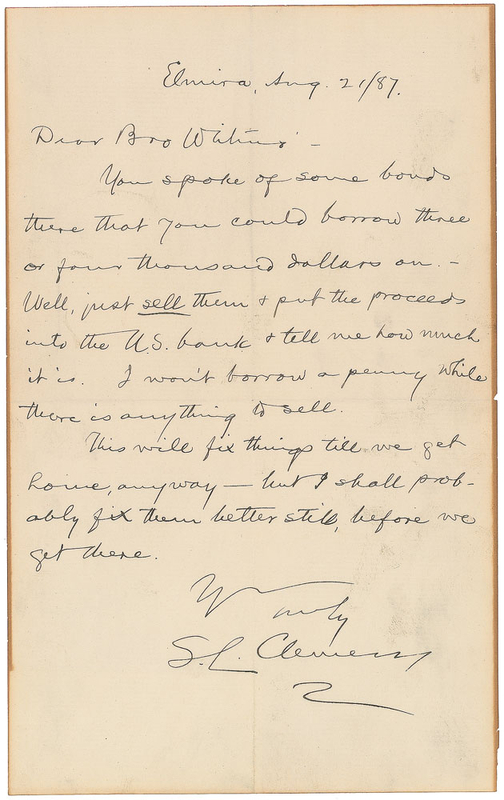 Elmira, Aug. 21/87.
Dear Bro Whiting –
You spoke of some bonds
there that you could borrow three
or four thousand dollars on. –
Well, just sell them & put the proceeds
into the U.S. bank & tell me how much
it is. I won't borrow a penny while
there is anything to sell.
This will fix things till we get
home, anyway — but I shall prob-
ably fix them better still, before we
get there.
Yrs truly
S. L. Clemens